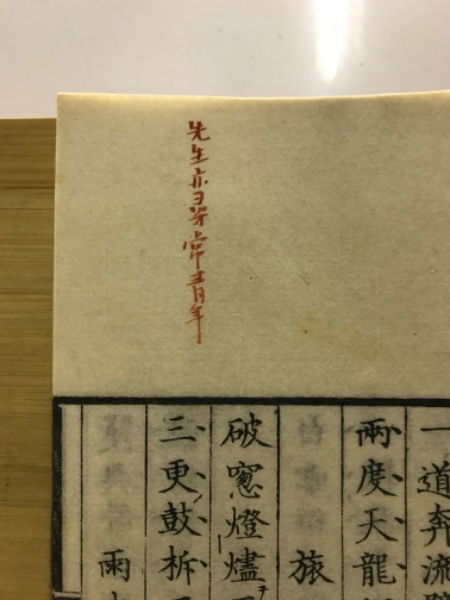 先生亦尋常青年
一道奔流
兩度天龍
旅
破窻燈燼
三更鼓柝
雨